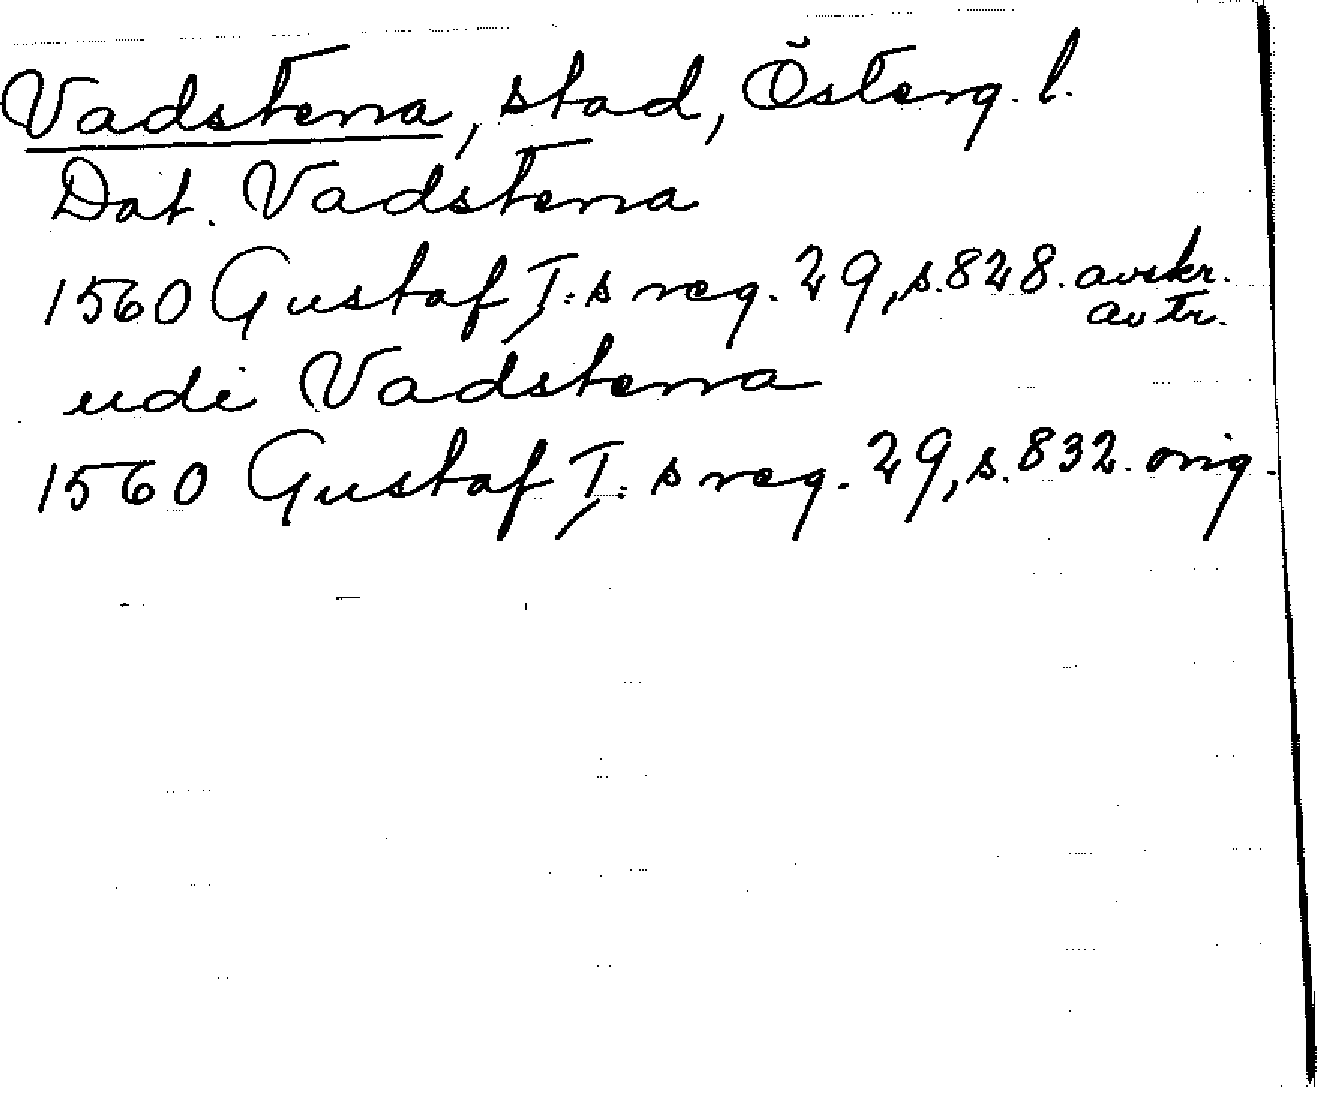 Vadstena, stad, Österg. l.
Dat. Vadstena
1560 Gustaf I:s reg. 29, s. 828. avskr.
av tr.
udi Vadstena
1560 Gustaf I:s reg. 29, s. 832. orig.